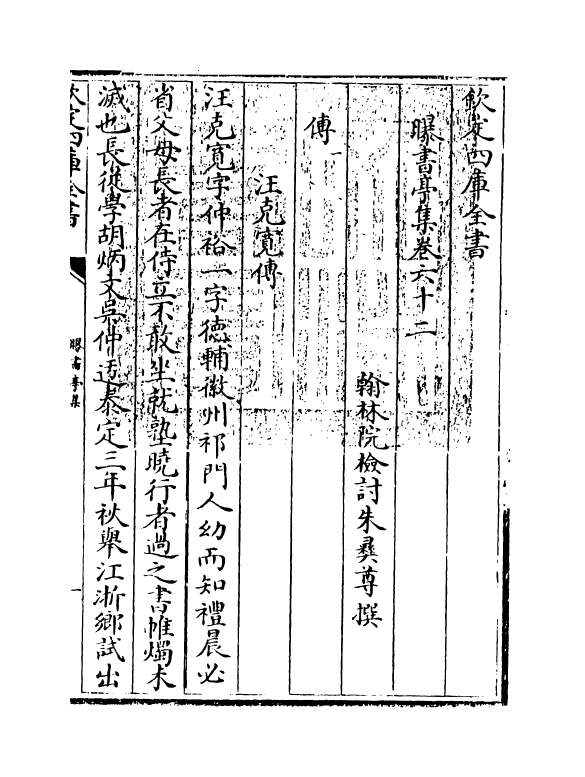 欽定四庫全書
曝書亭集卷六十二
翰林院檢討朱彝尊撰
傳一
汪克寛傳
汪克寛字仲裕一字德輔徽州祁門人幼而知禮晨必
省父母長者在侍立不敢坐就塾曉行者過之書帷燭未
滅也長從學胡炳文吳仲迂泰定三年秋舉江浙鄉試出
欽定四庫全書
曝書亭集
一